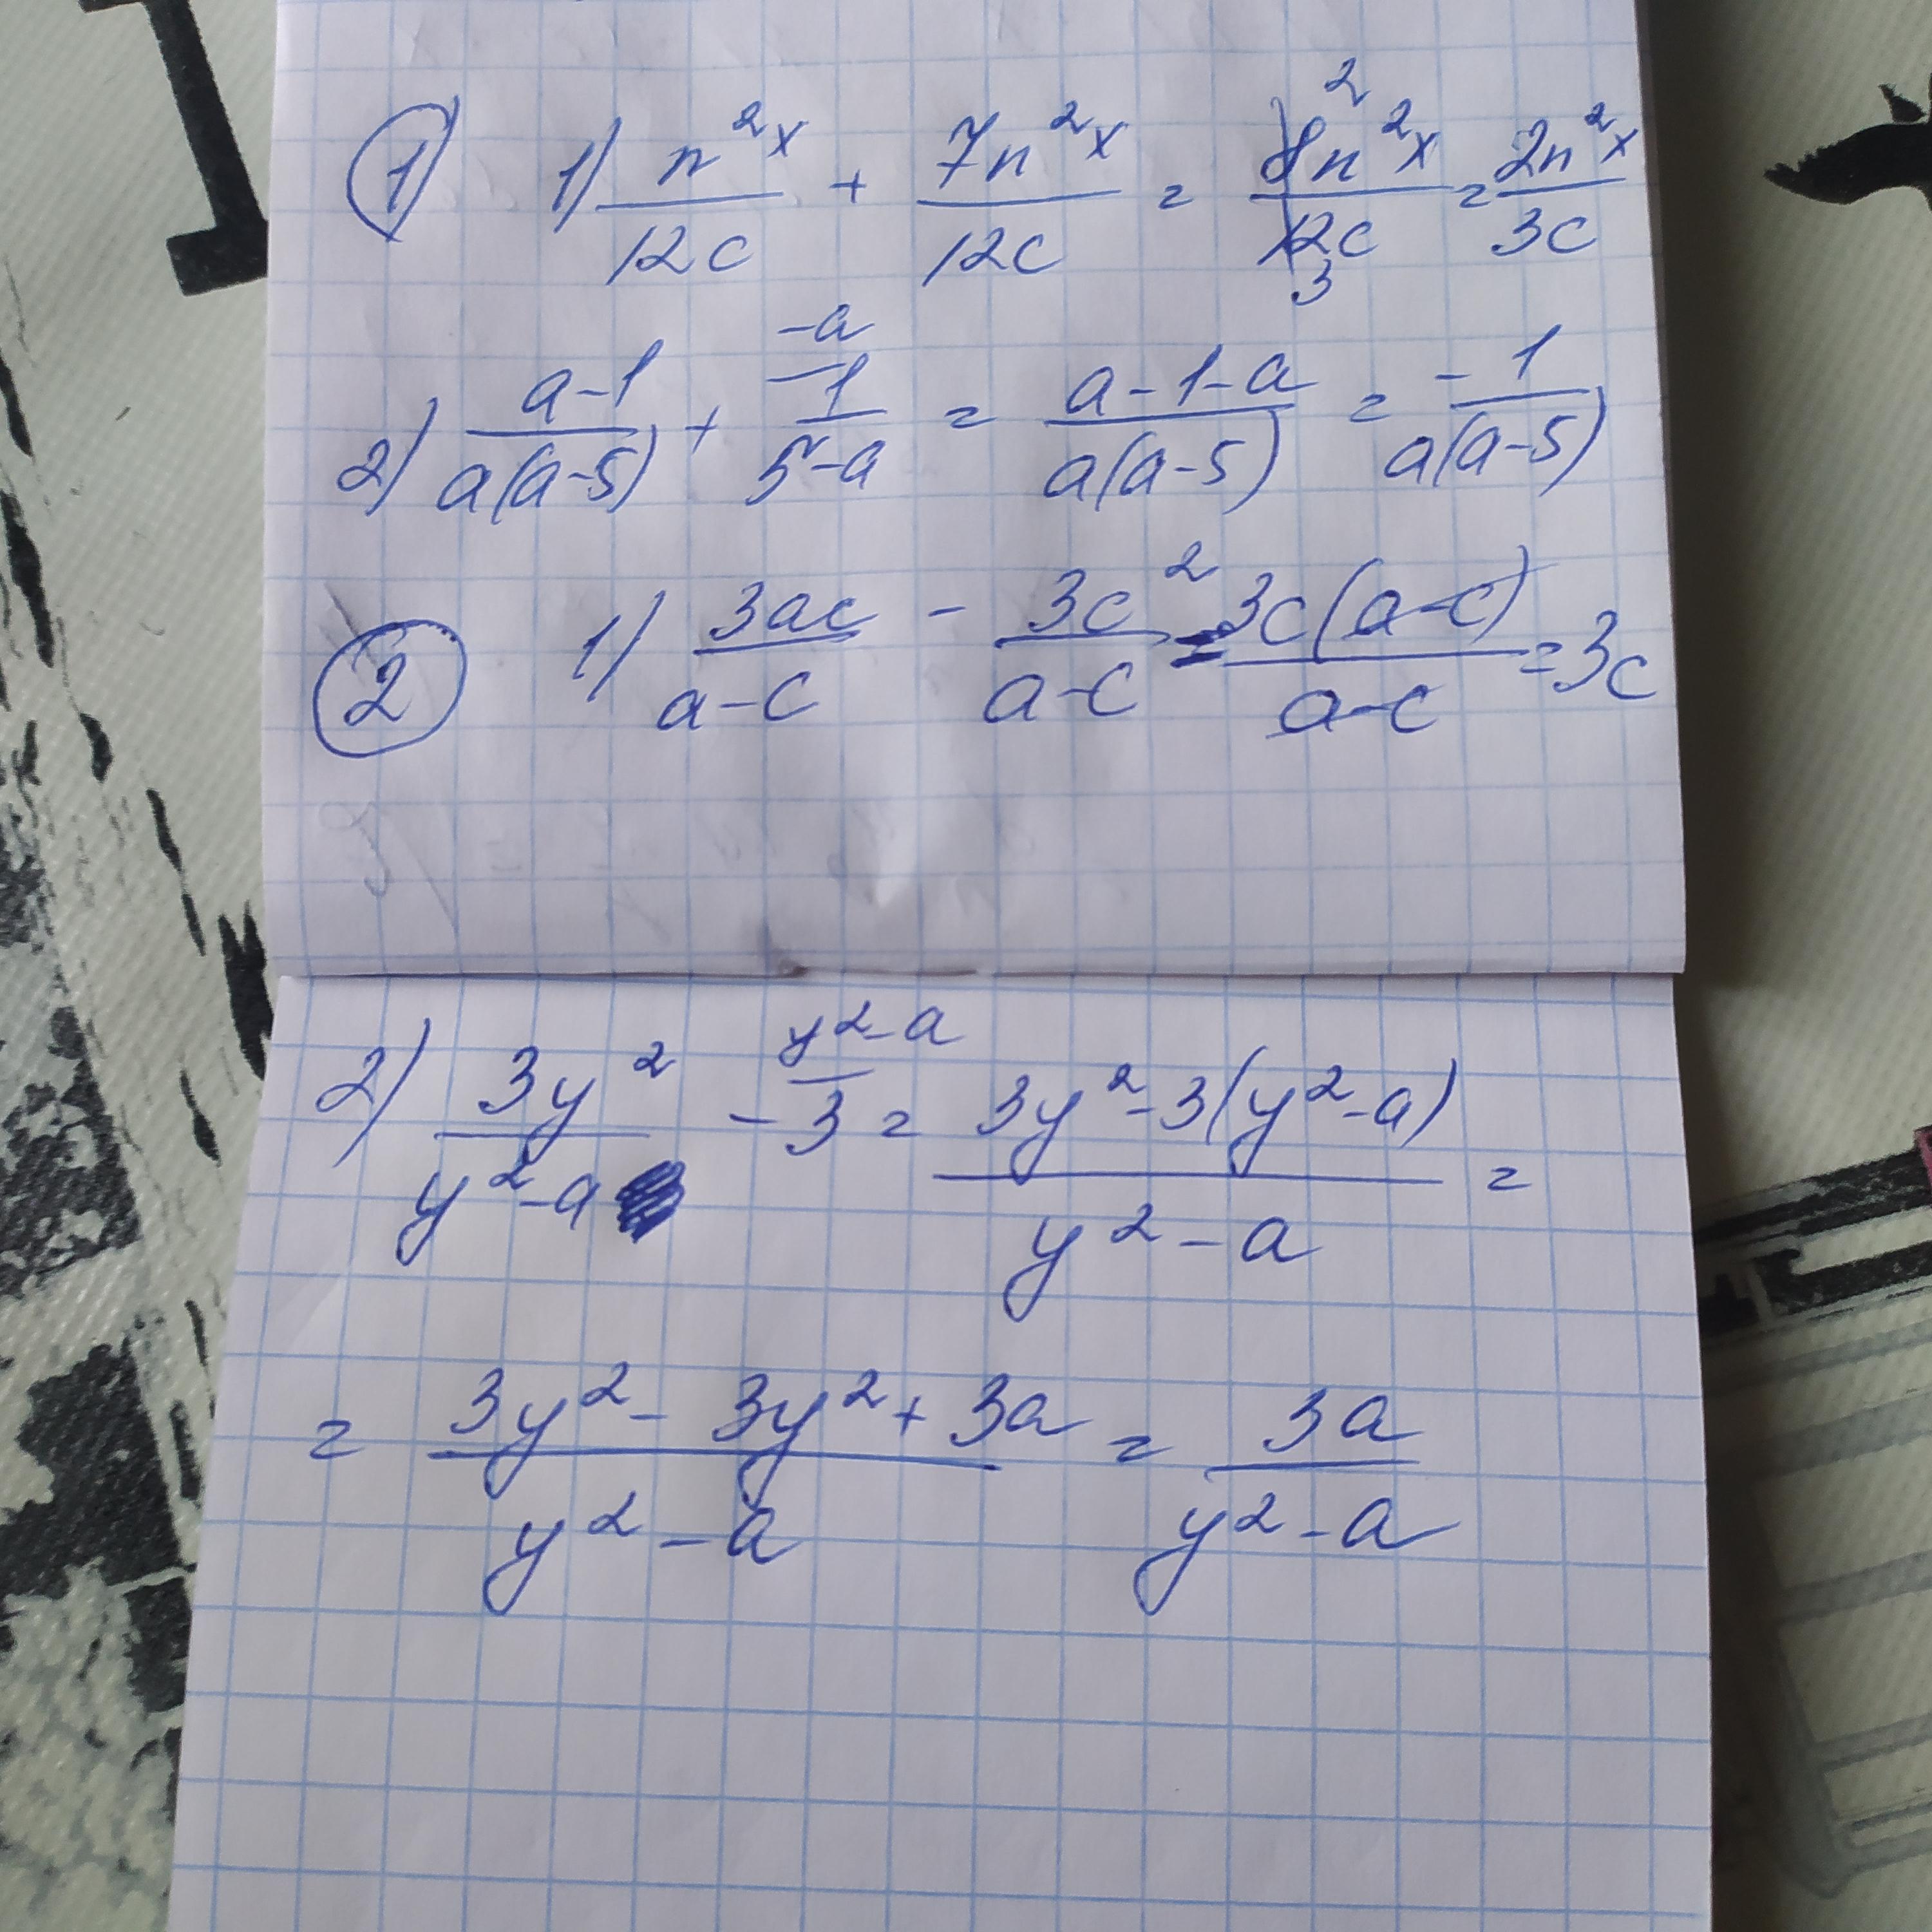 1) 1) n²x/12c + 7n²x/12c = 8n²x/12c = 2n²x/3c
2) a-1/a(a-5) + 1/5-a = a-1-a/a(a-5) = -1/a(a-5)
2 1) 3ac/a-c - 3c²/a-c = 3c(a-c)/a-c = 3c
2) 3y²/y²-a - 3 = 3y²-3(y²-a)/y²-a =
= 3y²-3y²+3a/y²-a = 3a/y²-a